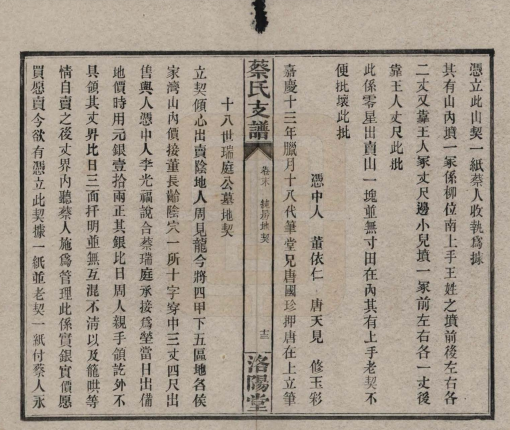 憑立此山契一紙蔡人收執為據
其有山內墳一冢係柳位南上手王姓之墳前後左右各
二丈又靠王人冢丈尺邊小兒墳一冢前左右各一丈後
靠王人丈尺此批
此係零星出賣山一塊並無寸田在內其有上手老契不
便批壞此批
憑中人 董依仁 唐天見 修玉彩
嘉慶十三年臘月十八代筆堂兄唐國珍押唐在上立筆
蔡氏支譜
卷末 地契
十三
洛陽堂
十八世瑞庭公墓地契
立契傾心出賣陰地人周見龍今將四甲下五區地名侯
家灣山內債接董長齡陰穴一所十字穿中三丈四尺出
售與人憑中人李光福說合蔡瑞庭承接為塋當日出備
地價時用元銀壹拾兩正其銀比日周人親手領訖外不
具領其丈界比日三面扦明並無互混不清以及籠哄等
情自賣之後丈界內聽蔡人施為管理此係實銀實價愿
買愿賣今欲有憑立此契據一紙並老契一紙付蔡人永